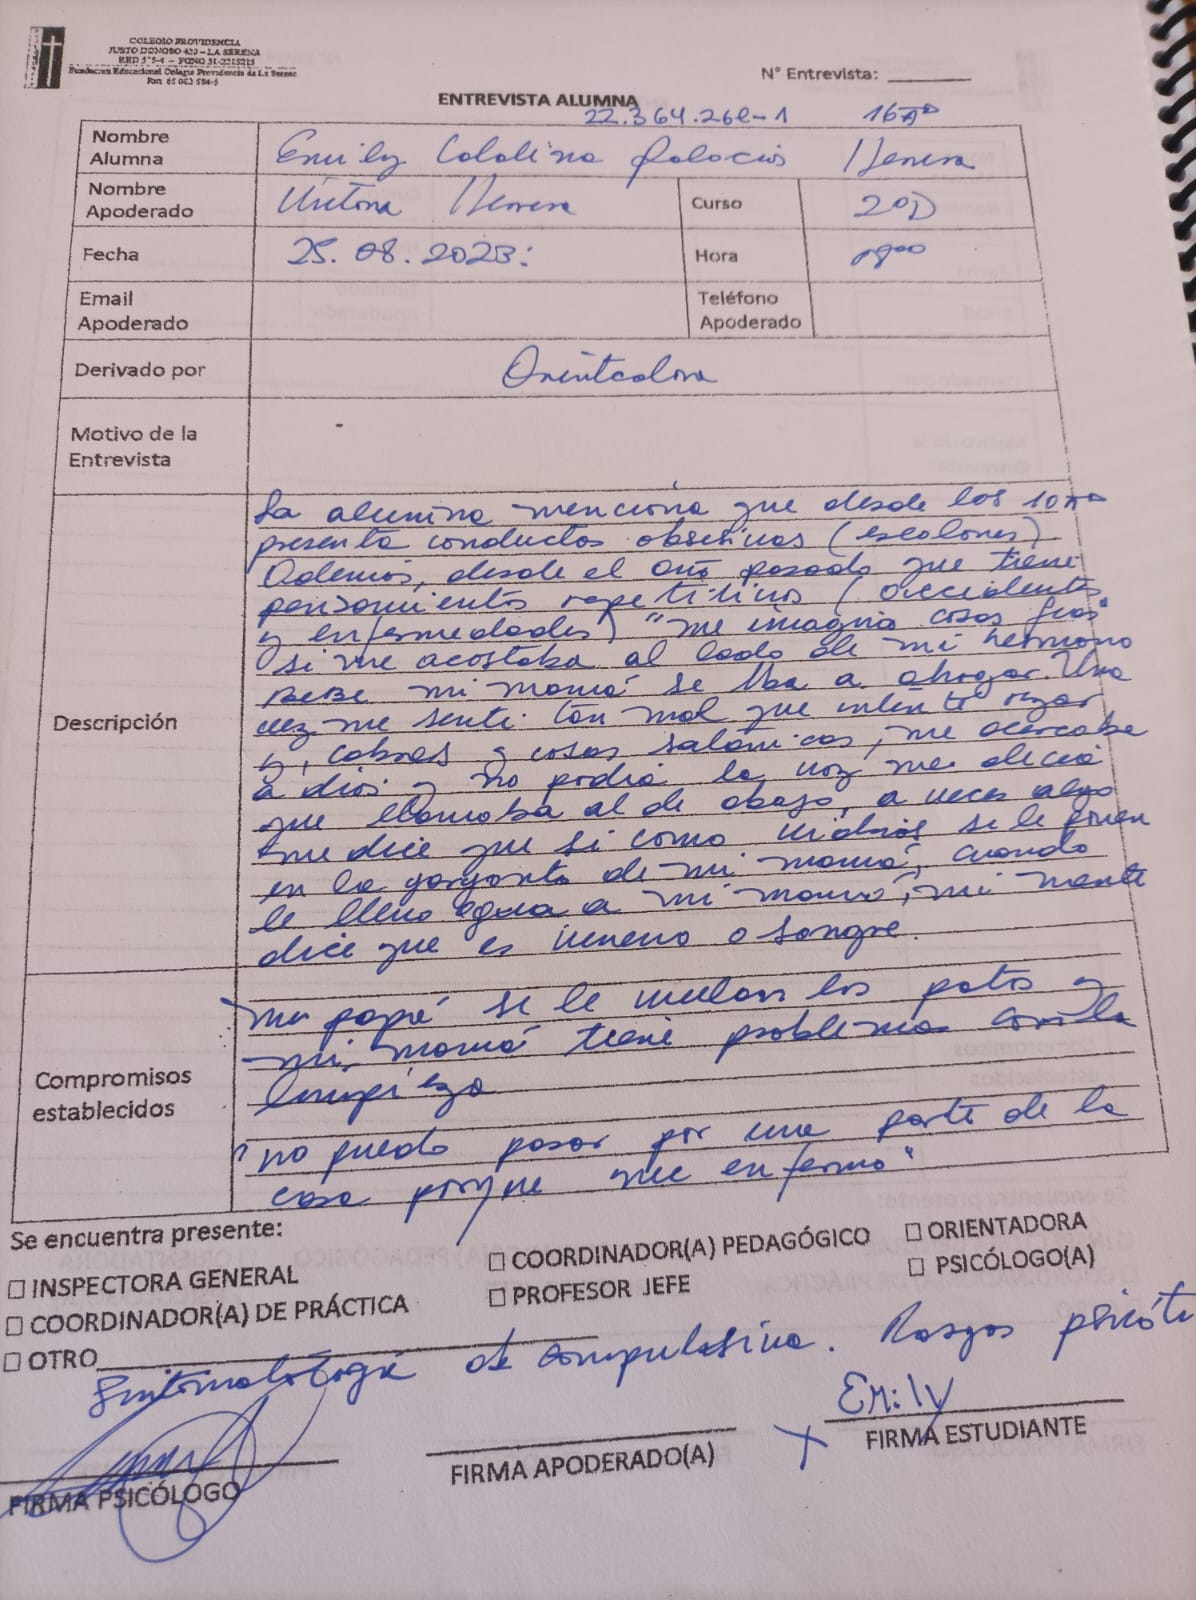 COLEGIO PROVIDENCIA
JUSTO DONOSO 420 – LA SERENA
RBD 575-4 – FONO 51-2215215
Fundación Educacional Colegio Providencia de La Serena
Rut: 65.063.594-5
N° Entrevista:
ENTREVISTA ALUMNA
22.364.26 -1 16 Aº
Nombre Alumna Emily Catalina Palacios Herrera
Nombre Apoderado Herrera Curso 2ºD
Fecha 25.08.2023: Hora
Email Apoderado Teléfono Apoderado
Derivado por Orientadora
Motivo de la Entrevista -
Descripción
La alumna menciona que desde los 10 Aº
presenta conductas obsesivas (escalones)
Además, desde el año pasado que tiene
pensamientos repetitivos (accidentes
y enfermedades) "me imagino cosas feas"
si me acostaba al lado de mi hermano
bebe mi mamá se iba a ahogar. Una
vez me sentí tan mal que intenté rezar
y, cabras y cosas satánicas, me acercaba
a dios y no podía la voz me decía
que llamaba al de abajo, a veces algo
me dice que si como vidrios se le ponen
en la garganta de mi mamá, cuando
le llevo agua a mi mamá, mi mente
dice que es veneno o sangre.
Compromisos establecidos
mi papá se le los patos y
mi mamá tiene problemas con la
limpieza
"no puedo pasar por una parte de la
casa porque me enfermo"
Se encuentra presente:
☐ INSPECTORA GENERAL ☐ COORDINADOR(A) PEDAGÓGICO ☐ ORIENTADORA
☐ COORDINADOR(A) DE PRÁCTICA ☐ PROFESOR JEFE ☐ PSICÓLOGO(A)
☐ OTRO
Sintomatología compulsiva. Rasgos psicót
Emily
FIRMA PSICÓLOGO FIRMA APODERADO(A) X FIRMA ESTUDIANTE